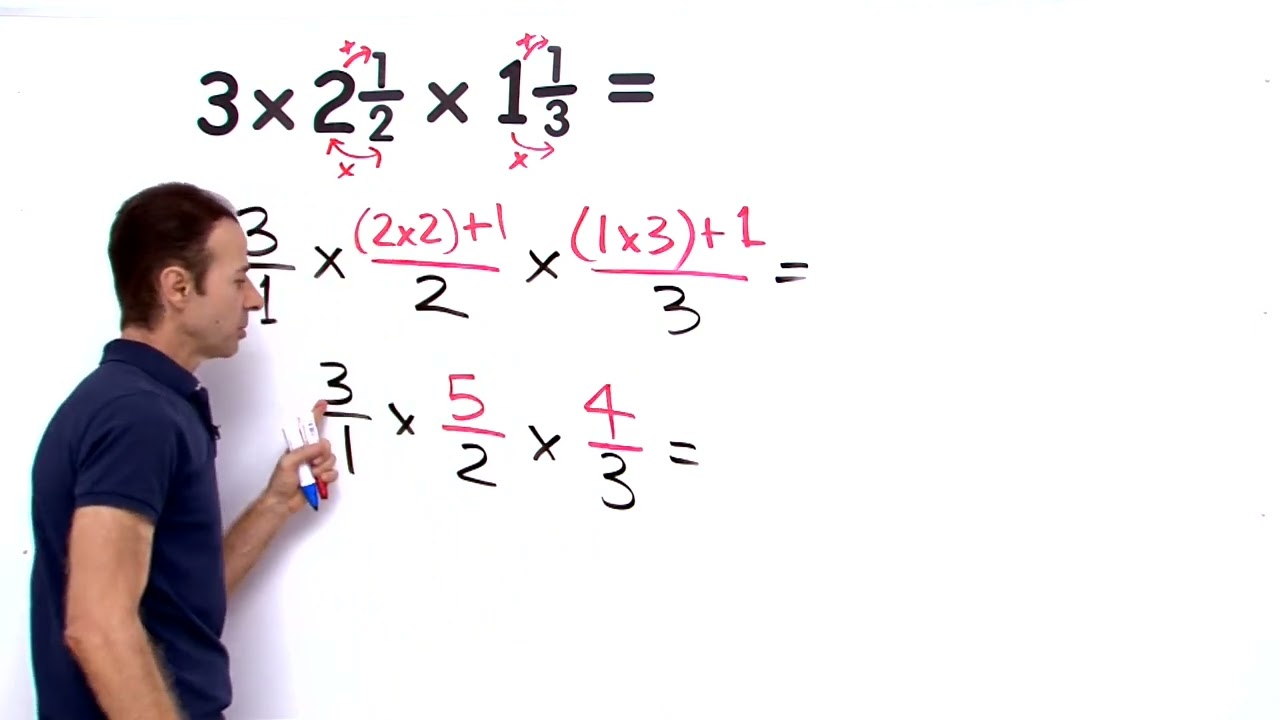 3 × 2 1/2 × 1 1/3 =
3/1 × (2×2)+1/2 × (1×3)+1/3 =
3/1 × 5/2 × 4/3 =